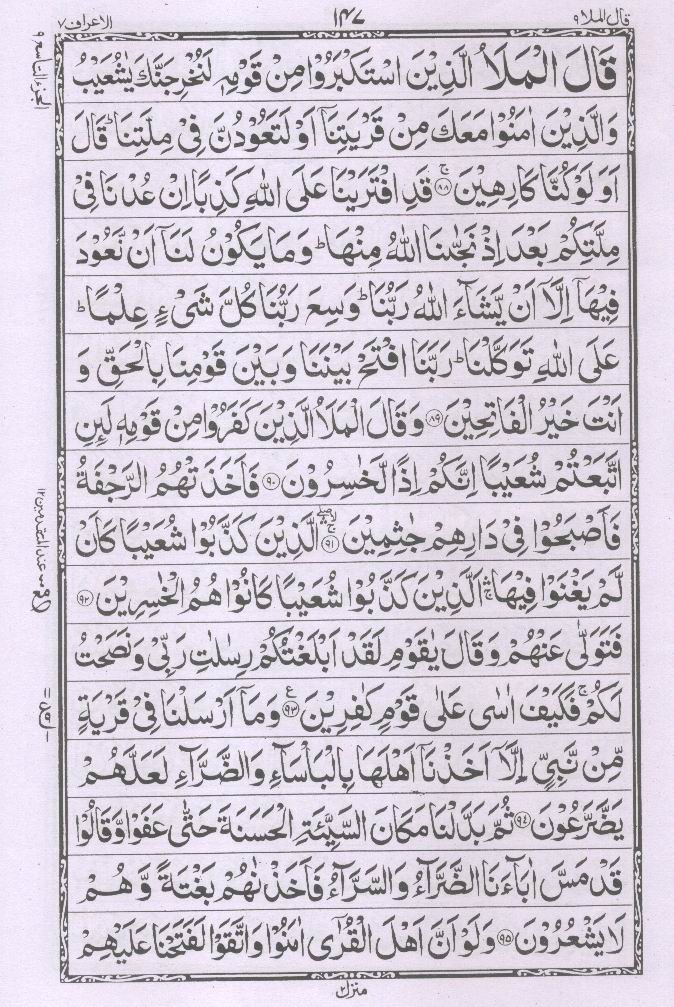 قال الملا ٩ ١٤٧ الاعراف ٧
الجزء التاسع ٩
قَالَ الْمَلَاُ الَّذِيْنَ اسْتَكْبَرُوْا مِنْ قَوْمِهٖ لَنُخْرِجَنَّكَ يٰشُعَيْبُ
وَالَّذِيْنَ اٰمَنُوْا مَعَكَ مِنْ قَرْيَتِنَاۤ اَوْ لَتَعُوْدُنَّ فِيْ مِلَّتِنَا ؕ قَالَ
اَوَلَوْ كُنَّا كَارِهِيْنَ ۚ ﴿٨٨﴾ قَدِ افْتَرَيْنَا عَلَى اللّٰهِ كَذِبًا اِنْ عُدْنَا فِيْ
مِلَّتِكُمْ بَعْدَ اِذْ نَجّٰىنَا اللّٰهُ مِنْهَا ؕ وَمَا يَكُوْنُ لَنَاۤ اَنْ نَّعُوْدَ
فِيْهَاۤ اِلَّاۤ اَنْ يَّشَآءَ اللّٰهُ رَبُّنَا ؕ وَسِعَ رَبُّنَا كُلَّ شَيْءٍ عِلْمًا ؕ
عَلَى اللّٰهِ تَوَكَّلْنَا ؕ رَبَّنَا افْتَحْ بَيْنَنَا وَبَيْنَ قَوْمِنَا بِالْحَقِّ وَ
اَنْتَ خَيْرُ الْفَاتِحِيْنَ ﴿٨٩﴾ وَقَالَ الْمَلَاُ الَّذِيْنَ كَفَرُوْا مِنْ قَوْمِهٖ لَئِنِ
اتَّبَعْتُمْ شُعَيْبًا اِنَّكُمْ اِذًا لَّخٰسِرُوْنَ ﴿٩٠﴾ فَاَخَذَتْهُمُ الرَّجْفَةُ
فَاَصْبَحُوْا فِيْ دَارِهِمْ جٰثِمِيْنَ ﴿٩١﴾ الَّذِيْنَ كَذَّبُوْا شُعَيْبًا كَاَنْ
لَّمْ يَغْنَوْا فِيْهَا ۛۚ اَلَّذِيْنَ كَذَّبُوْا شُعَيْبًا كَانُوْا هُمُ الْخٰسِرِيْنَ ﴿٩٢﴾
فَتَوَلّٰى عَنْهُمْ وَقَالَ يٰقَوْمِ لَقَدْ اَبْلَغْتُكُمْ رِسٰلٰتِ رَبِّيْ وَنَصَحْتُ
لَكُمْ ۚ فَكَيْفَ اٰسٰى عَلٰى قَوْمٍ كٰفِرِيْنَ ﴿٩٣﴾ ع وَمَاۤ اَرْسَلْنَا فِيْ قَرْيَةٍ
مِّنْ نَّبِيٍّ اِلَّاۤ اَخَذْنَاۤ اَهْلَهَا بِالْبَاْسَآءِ وَالضَّرَّآءِ لَعَلَّهُمْ
يَضَّرَّعُوْنَ ﴿٩٤﴾ ثُمَّ بَدَّلْنَا مَكَانَ السَّيِّئَةِ الْحَسَنَةَ حَتّٰى عَفَوْا وَّقَالُوْا
قَدْ مَسَّ اٰبَآءَنَا الضَّرَّآءُ وَالسَّرَّآءُ فَاَخَذْنٰهُمْ بَغْتَةً وَّهُمْ
لَا يَشْعُرُوْنَ ﴿٩٥﴾ وَلَوْ اَنَّ اَهْلَ الْقُرٰۤى اٰمَنُوْا وَاتَّقَوْا لَفَتَحْنَا عَلَيْهِمْ
منزل ٢